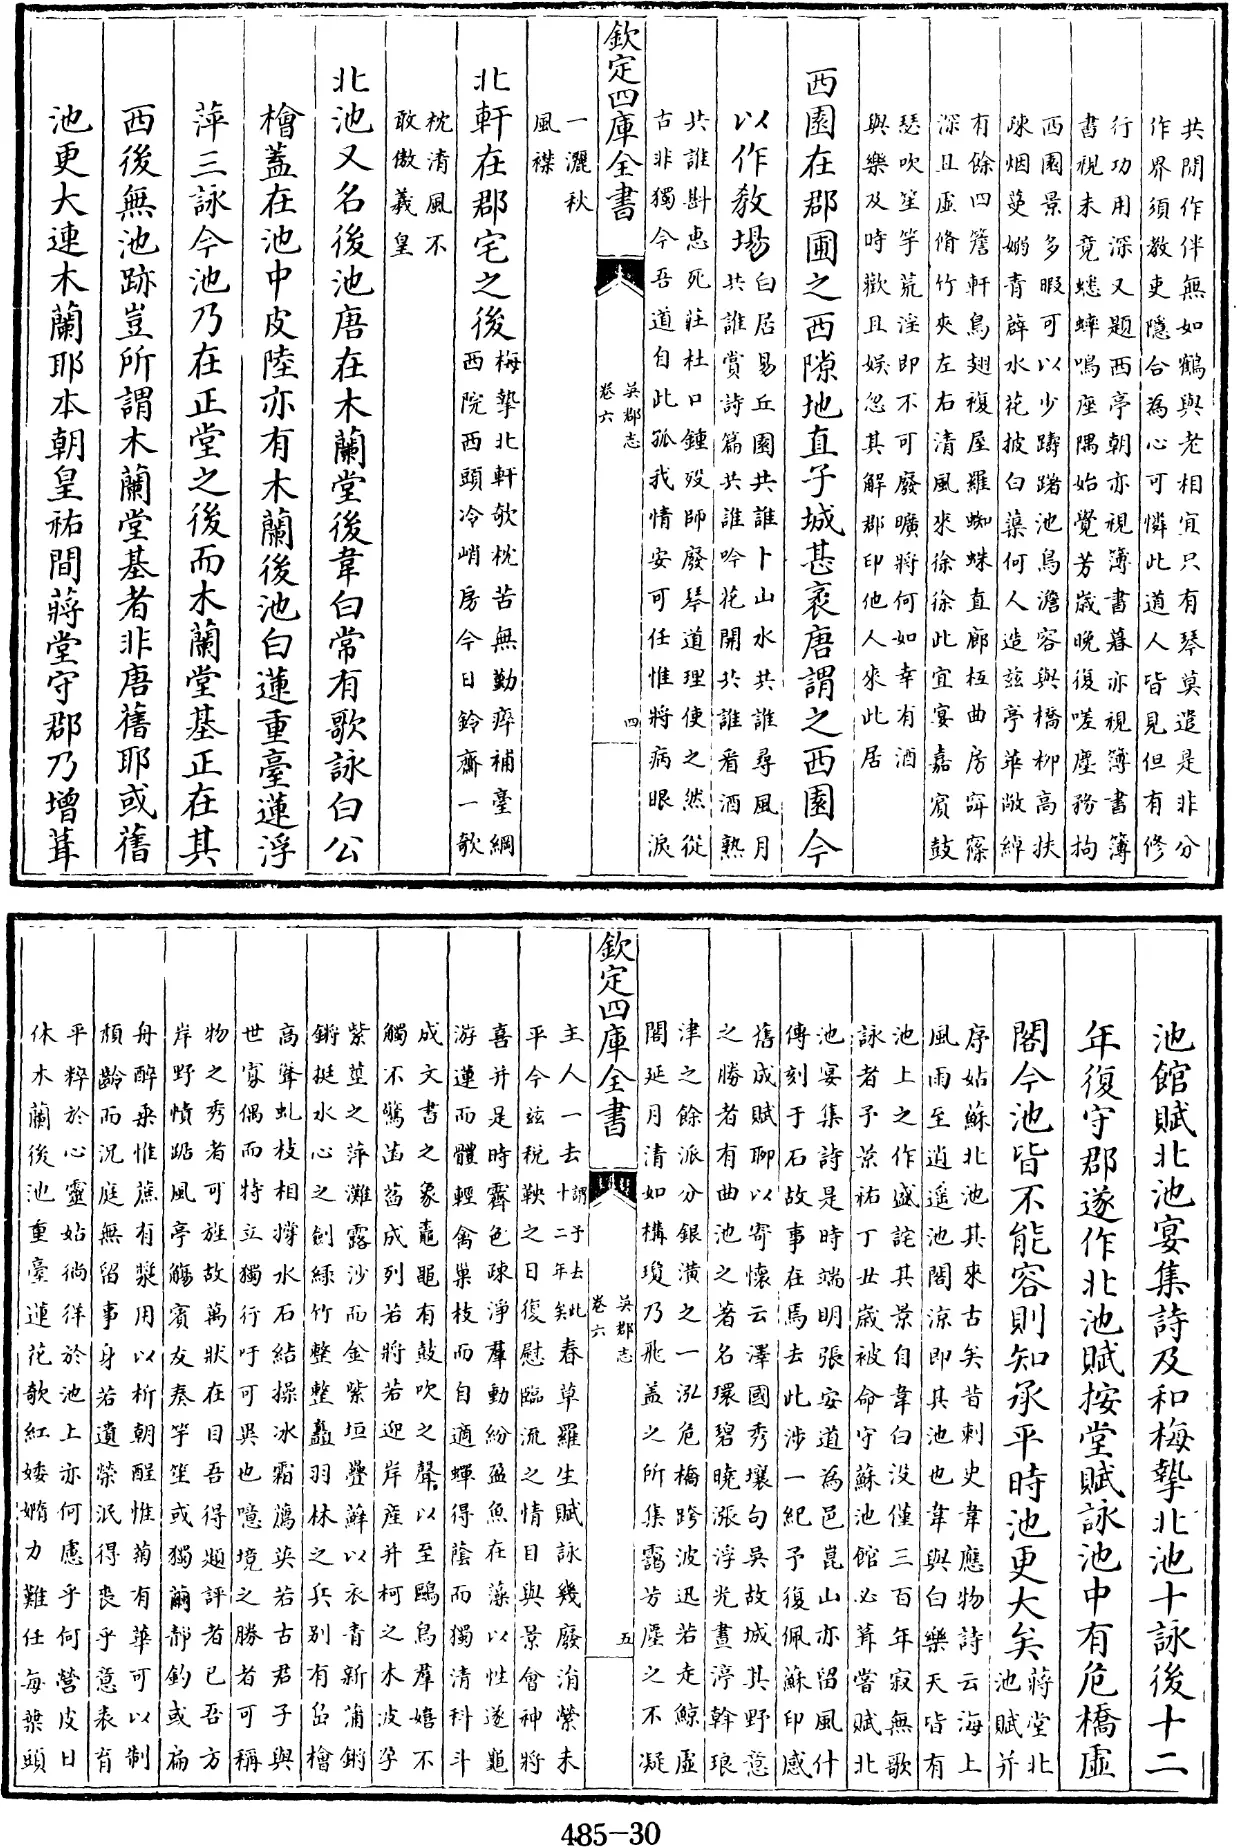 共閒作伴無如鶴與老相宜只有琴莫遣是非分
作界須教吏隱合為心可憐此道人皆見但有修
行功用深又題西亭朝亦視簿書暮亦視簿書簿
書視未竟蟋蟀鳴座隅始覺芳歲晚復嗟塵務拘
西園景多暇可以少躊躇池鳥澹容與橋柳高扶
疎烟蔓嫋青薜水花披白蕖何人造茲亭華敞綽
有餘四簷軒鳥翅複屋羅蜘蛛直廊柩曲房窈窱
深且虛脩竹夾左右清風來徐徐此宜宴嘉賓鼓
瑟吹笙竽荒淫即不可廢曠將何如幸有酒
與樂及時歡且娛忽其解郡印他人來此居
西園在郡圃之西隙地直子城甚袤唐謂之西園今
以作教場
白居易丘園共誰卜山水共誰尋風月
共誰賞詩篇共誰吟花開共誰看酒熟
共誰斟惠死莊杜口鍾歿師廢琴道理使之然從
古非獨今吾道自此孤我情安可任惟將病眼淚
欽定四庫全書
吳郡志
卷六
四
一灑秋
風襟
北軒在郡宅之後
梅摯北軒欹枕苦無勤瘁補臺綱
西院西頭冷峭房今日鈴齋一欹
枕清風不
敢傲羲皇
北池又名後池唐在木蘭堂後韋白常有歌詠白公
檜蓋在池中皮陸亦有木蘭後池白蓮重臺蓮浮
萍三詠今池乃在正堂之後而木蘭堂基正在其
西後無池跡豈所謂木蘭堂基者非唐舊耶或舊
池更大連木蘭耶本朝皇祐間蔣堂守郡乃增葺
池館賦北池宴集詩及和梅摯北池十詠後十二
年復守郡遂作北池賦按堂賦詠池中有危橋虛
閣今池皆不能容則知承平時池更大矣
蔣堂北
池賦并
序姑蘇北池其來古矣昔刺史韋應物詩云海上
風雨至逍遙池閣涼即其池也韋與白樂天皆有
池上之作盛詫其景自韋白沒僅三百年寂無歌
詠者予景祐丁丑歲被命守蘇池館必葺嘗賦北
池宴集詩是時端明張安道為邑崑山亦留風什
傳刻于石故事在焉去此涉一紀予復佩蘇印感
舊成賦聊以寄懷云澤國秀壤句吳故城其野意
之勝者有曲池之著名環碧曉漲浮光晝渟斡琅
津之餘派分銀潢之一泓危橋跨波迅若走鯨虛
閣延月清如構瓊乃飛蓋之所集靄芳塵之不凝
欽定四庫全書
吳郡志
卷六
五
主人一去謂予去此十二年矣春草羅生賦詠幾廢洧縈未
平今茲稅鞅之日復慰臨流之情目與景會神將
喜并是時霽色疎淨羣動紛盈魚在藻以性遂龜
游蓮而體輕禽巢枝而自適蟬得蔭而獨清科斗
成文書之象黿黽有鼓吹之聲以至鷗鳥羣嬉不
觸不驚菡萏成列若將若迎岸産并柯之木波孕
紫莖之萍灘露沙而金紫垣疊蘚以衣青新蒲鏘
鏘挺水心之劍綠竹整整矗羽林之兵別有嵒檜
高聳虬枝相撐水石結操冰霜藨英若古君子與
世寡偶而特立獨行吁可異也噫境之勝者可稱
物之秀者可旌故萬狀在目吾得題評者已吾方
岸野幘踞風亭觴賓友奏竽笙或獨繭靜釣或扁
舟醉乗惟蔗有漿用以析朝酲惟菊有華可以制
頽齡而況庭無留事身若遺榮泯得喪乎意表育
平粹於心靈姑徜徉於池上亦何慮乎何營皮日
休木蘭後池重臺蓮花欹紅婑媠力難任每葉頭
485-30